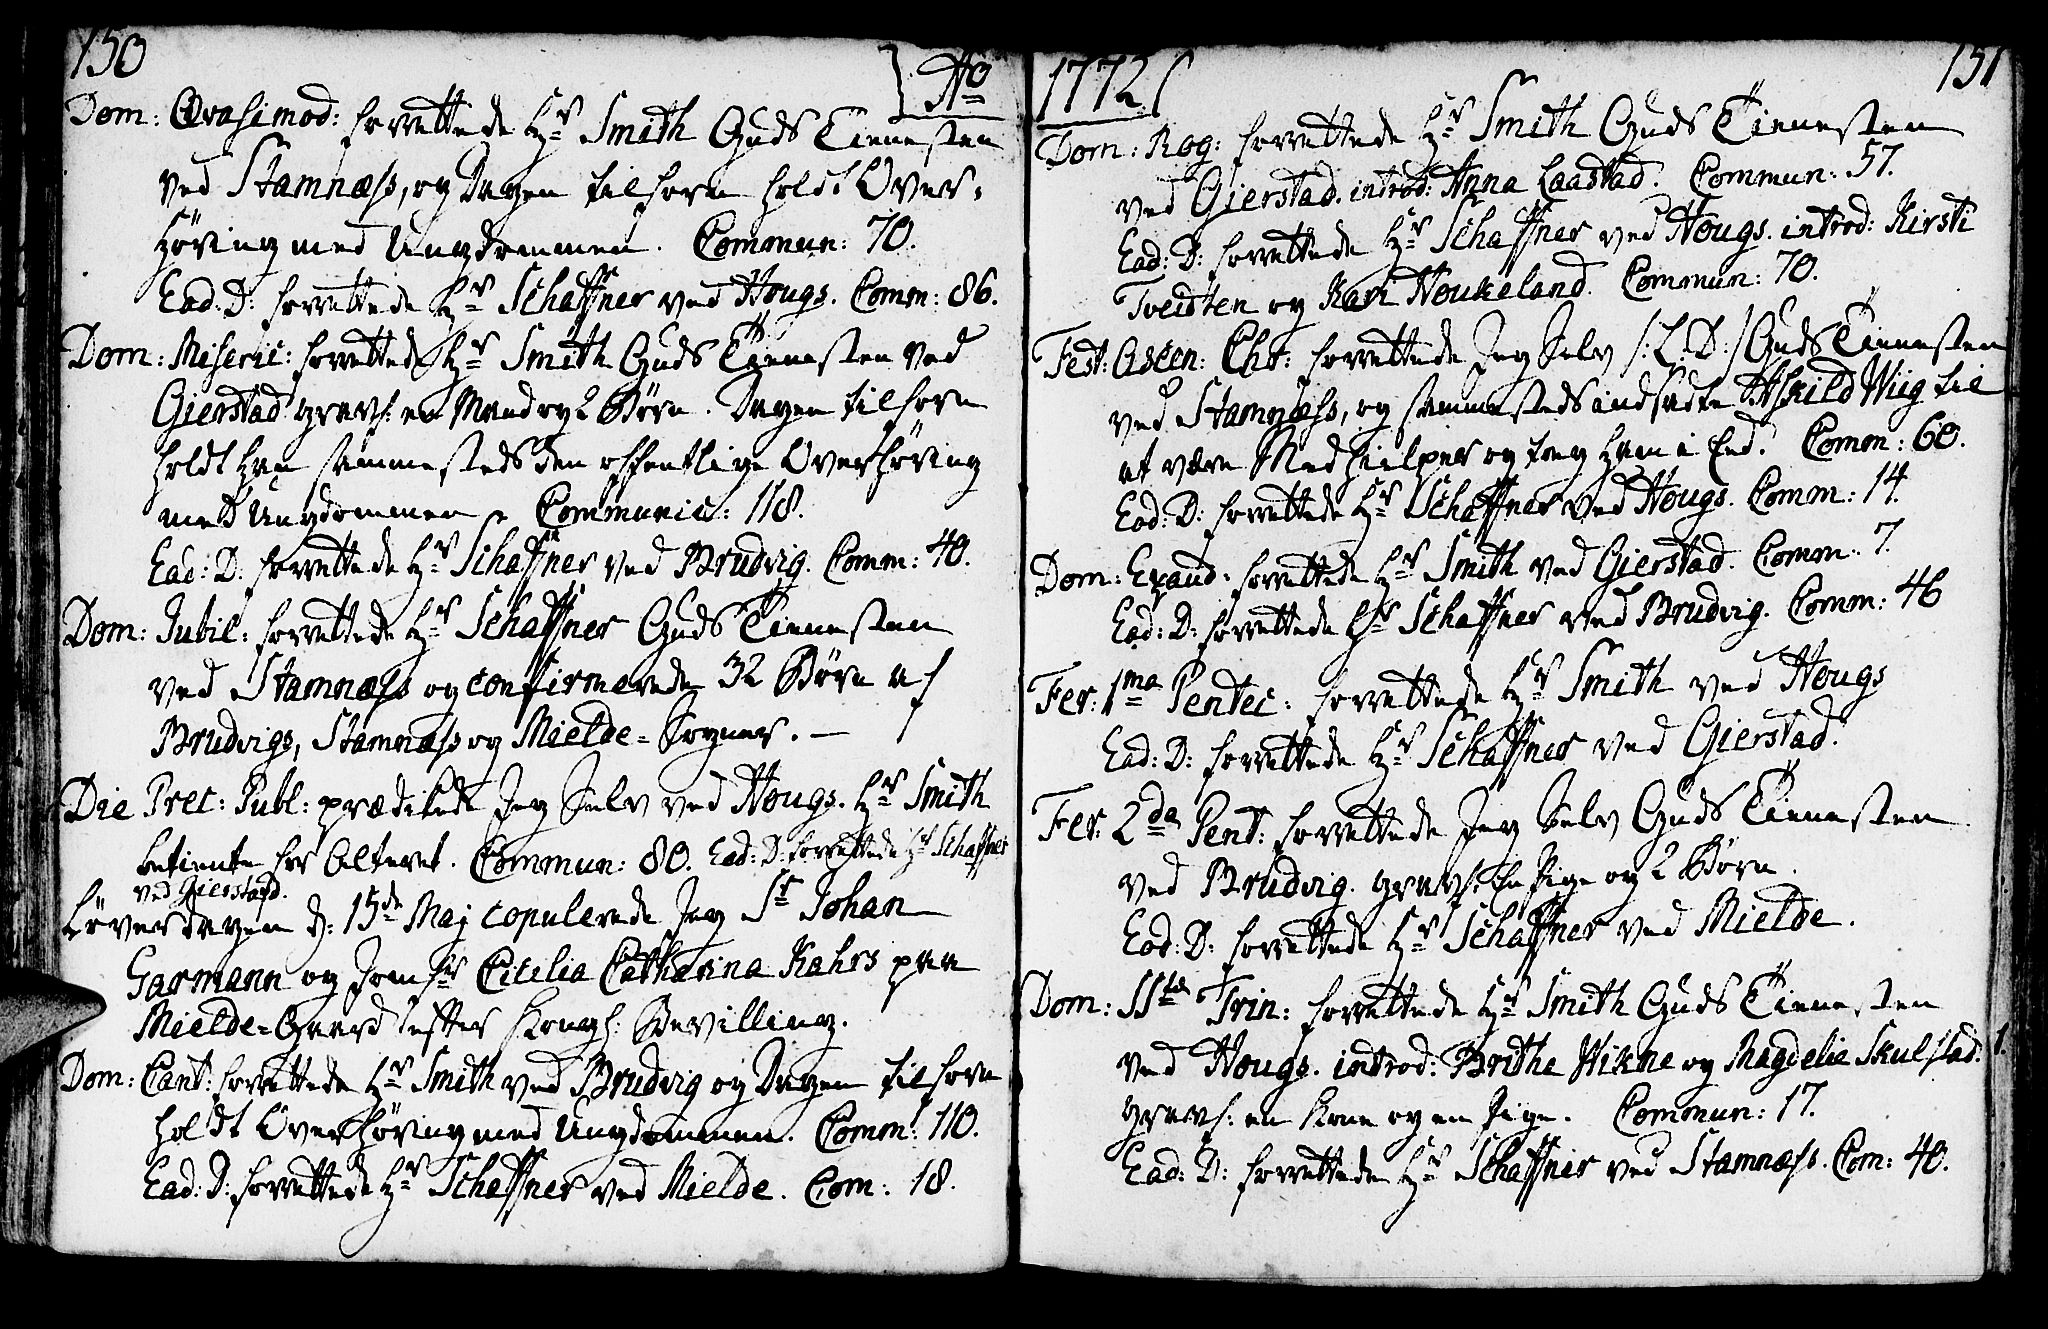 150
Ao
Dom: Qvasimod: forrettede Hr Smith Guds Tienesten
ved Stamnæss, og Dagen tilforn holdt Over-
höring med Ungdommen. Commun: 70.
Ead: D: forrettede Hr Schaffner ved Hougs. Comm: 86.
Dom: Miseric: forrettede Hr Smith Guds Tienesten ved
Gierstad græs: en Mand og 2 Börn. Dagen tilforn
holdt han sammesteds den offentlige Overhöring
med Ungdommen. Communic: 118.
Ead: D: forrettede Hr Schaffner ved Brudvig. Comm: 40.
Dom: Jubil: forrettede Hr Schaffner Guds Tienesten
ved Stamnæss og confirmerede 32 Börn af
Brudvigs, Stamnæss og Mielde-Sogner. —
Die Prec: Publ: prædikede Jeg Selv ved Hougs. Hr Smith
betiente for Alteret. Commun: 80. Ead: D: forrettede Hr Schaffner
ved Gierstad.
Löverdagen d: 15de Maj copulerede Jeg Sr Johan
Garmann og Jomfr Cicilia Catharina Kahrs paa
Mielde-Gaard efter Kongl: Bevilling.
Dom: Cant: forrettede Hr Smith ved Brudvig og Dagen tilforn
holdt Overhöring med Ungdommen. Comm: 110.
Ead: D: forrettede Hr Schaffner ved Mielde. Com: 18.
1772
151
Dom: Rog: forrettede Hr Smith Guds Tienesten
ved Gierstad. introd: Anna Laastad. Commun: 57.
Ead: D: forrettede Hr Schaffner ved Hougs. introd: Kirsti
Tveidten og Kari Houkeland. Commun: 70.
Fest: Ascen: Chr: forrettede Jeg Selv /:L:D:/ Guds Tienesten
ved Stamnæss, og sammesteds indsatte Askild Wiig til
at være Medhielper og tog ham i Eed. Comm: 60.
Ead: D: forrettede Hr Schaffner ved Hougs. Comm: 14.
Dom: Exaud: forrettede Hr Smith ved Gierstad. Comm: 7.
Ead: D: forrettede Hr Schaffner ved Brudvig. Comm: 46
Fer: 1ma Pentec: forrettede Hr Smith ved Hougs
Ead: D: forrettede Hr Schaffner ved Gierstad.
Fer: 2da Pent: forrettede Jeg Selv Guds Tienesten
ved Brudvig. græs: En Pige og 2 Börn.
Ead: D: forrettede Hr Schaffner ved Mielde.
Dom: SStæ Trin: forrettede Hr Smith Guds Tienesten
ved Hougs. introd: Brithe Hikne og Magdelie Skulstad. 1.
græs: en Kone og en Pige. Commun: 17.
Ead: D: forrettede Hr Schaffner ved Stamnæss. Com: 40.